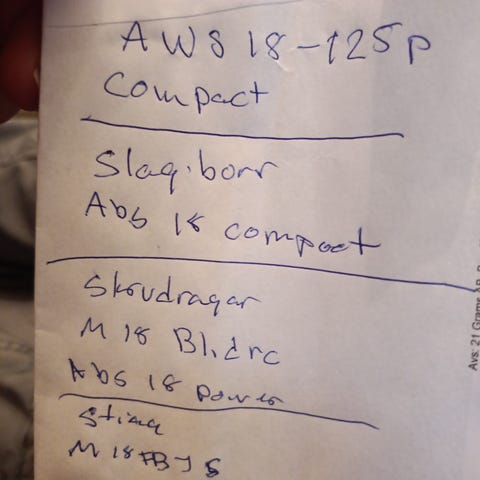 AWS 18-125P
Compact
Slag.borr
Abs 18 compact
Skruvdragar
M 18 Bl.drc
Abs 18 power
M 18 FBJS
Avs: 21 Grams AB